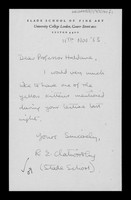 SLADE SCHOOL OF FINE ART
University College London, Gower Street, WC1
11TH NOV '53
Dear Professor Haldane,
I would very much
like to have one of the
yellow outlines mentioned
during your lecture last
night.
Yours sincerely,
(Slade School)